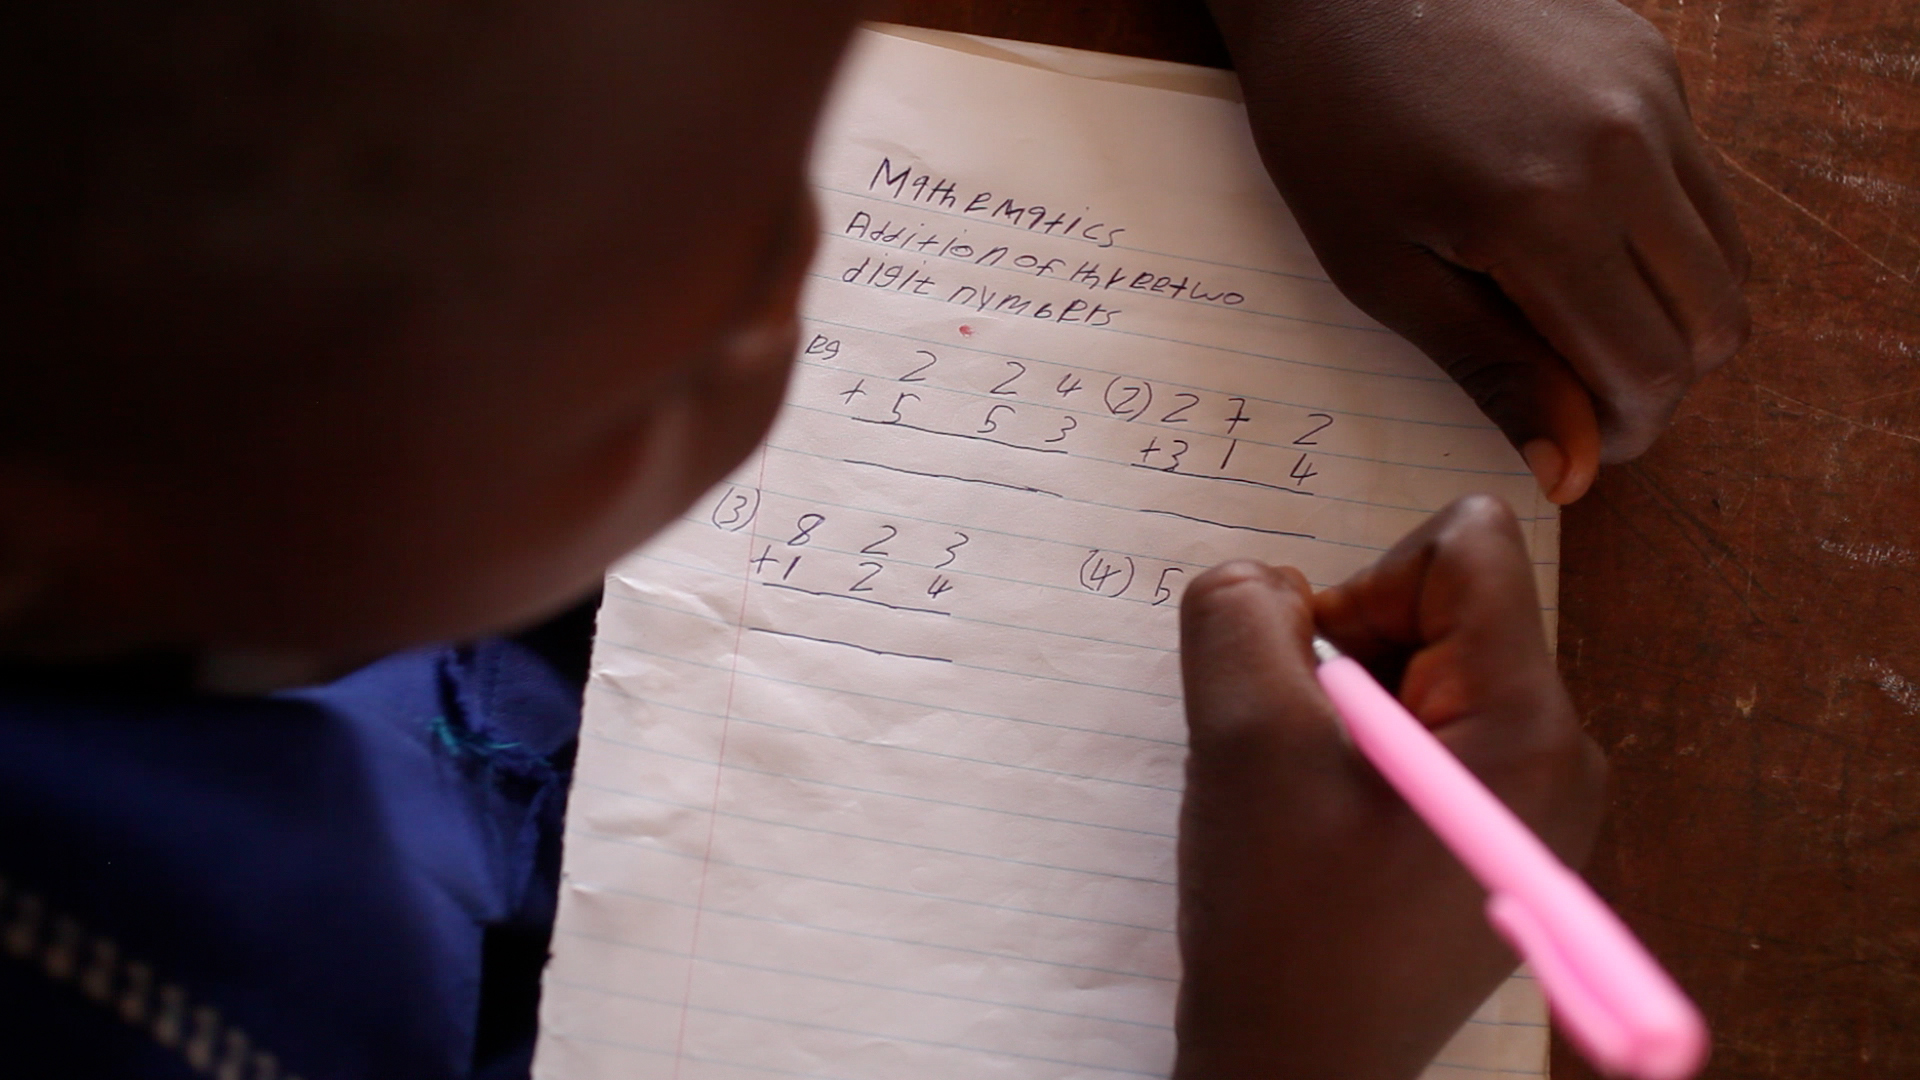 Mathematics
Addition of three two
digit numbers
eg 2 2 4 (2) 2 7 2
+ 5 5 3 +3 1 4
(3) 8 2 3 (4) 5
+1 2 4